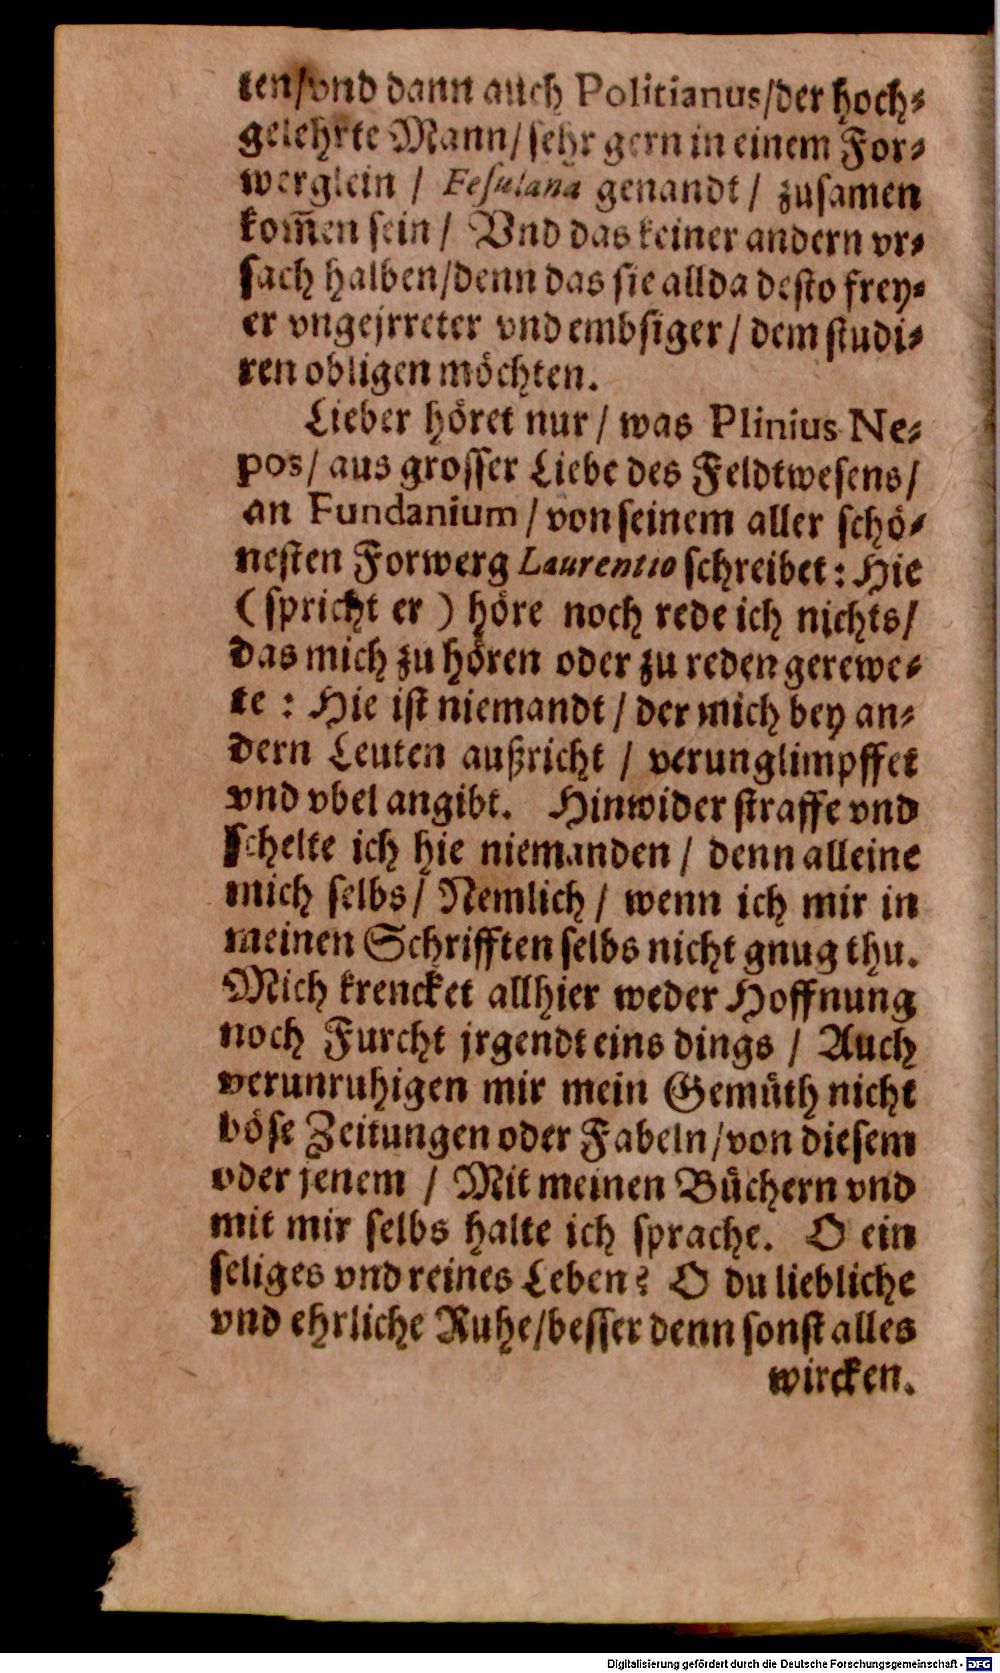 ten/vnd dann auch Politianus/der hoch⸗
gelehrte Mann/ sehr gern in einem For⸗
werglein / Fesulana genandt / zusamen
kom̃en sein / Vnd das keiner andern vr⸗
sach halben/denn das sie allda desto frey⸗
er vngejrreter vnd embsiger / dem studi⸗
ren obligen möchten.
Lieber höret nur / was Plinius Ne⸗
pos/ aus grosser Liebe des Feldtwesens/
an Fundanium / von seinem aller schö⸗
nesten Forwerg Laurentio schreibet: Hie
( spricht er ) höre noch rede ich nichts/
das mich zu hören oder zu reden gerewe⸗
te : Hie ist niemandt / der mich bey an⸗
dern Leuten außricht / verunglimpffet
vnd vbel angibt. Hinwider straffe vnd
schelte ich hie niemanden / denn alleine
mich selbs/ Nemlich / wenn ich mir in
meinen Schrifften selbs nicht gnug thu.
Mich krencket allhier weder Hoffnung
noch Furcht jrgendt eins dings / Auch
verunruhigen mir mein Gemüth nicht
böse Zeitungen oder Fabeln/von diesem
oder jenem / Mit meinen Büchern vnd
mit mir selbs halte ich sprache. O ein
seliges vnd reines Leben? O du liebliche
vnd ehrliche Ruhe/besser denn sonst alles
wircken.
Digitalisierung gefördert durch die Deutsche Forschungsgemeinschaft - DFG